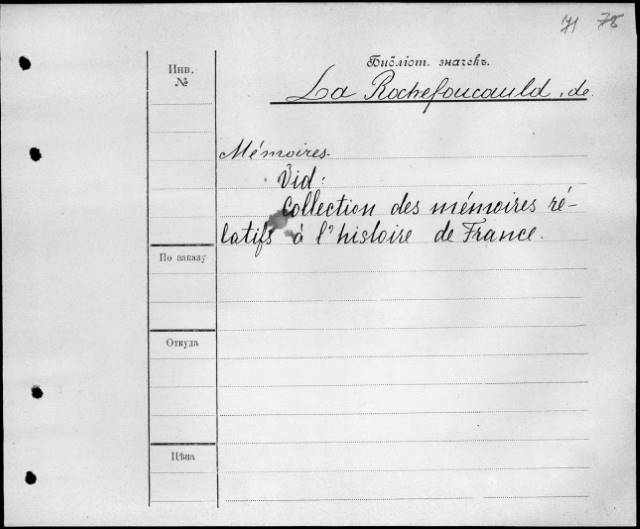 71 78
Инв.
№
Библіот. значекъ.
La Rochefoucauld, de.
Mémoires.
Vid:
Collection des mémoires ré-
latifs à l'histoire de France.
По заказу
Откуда
Цѣна